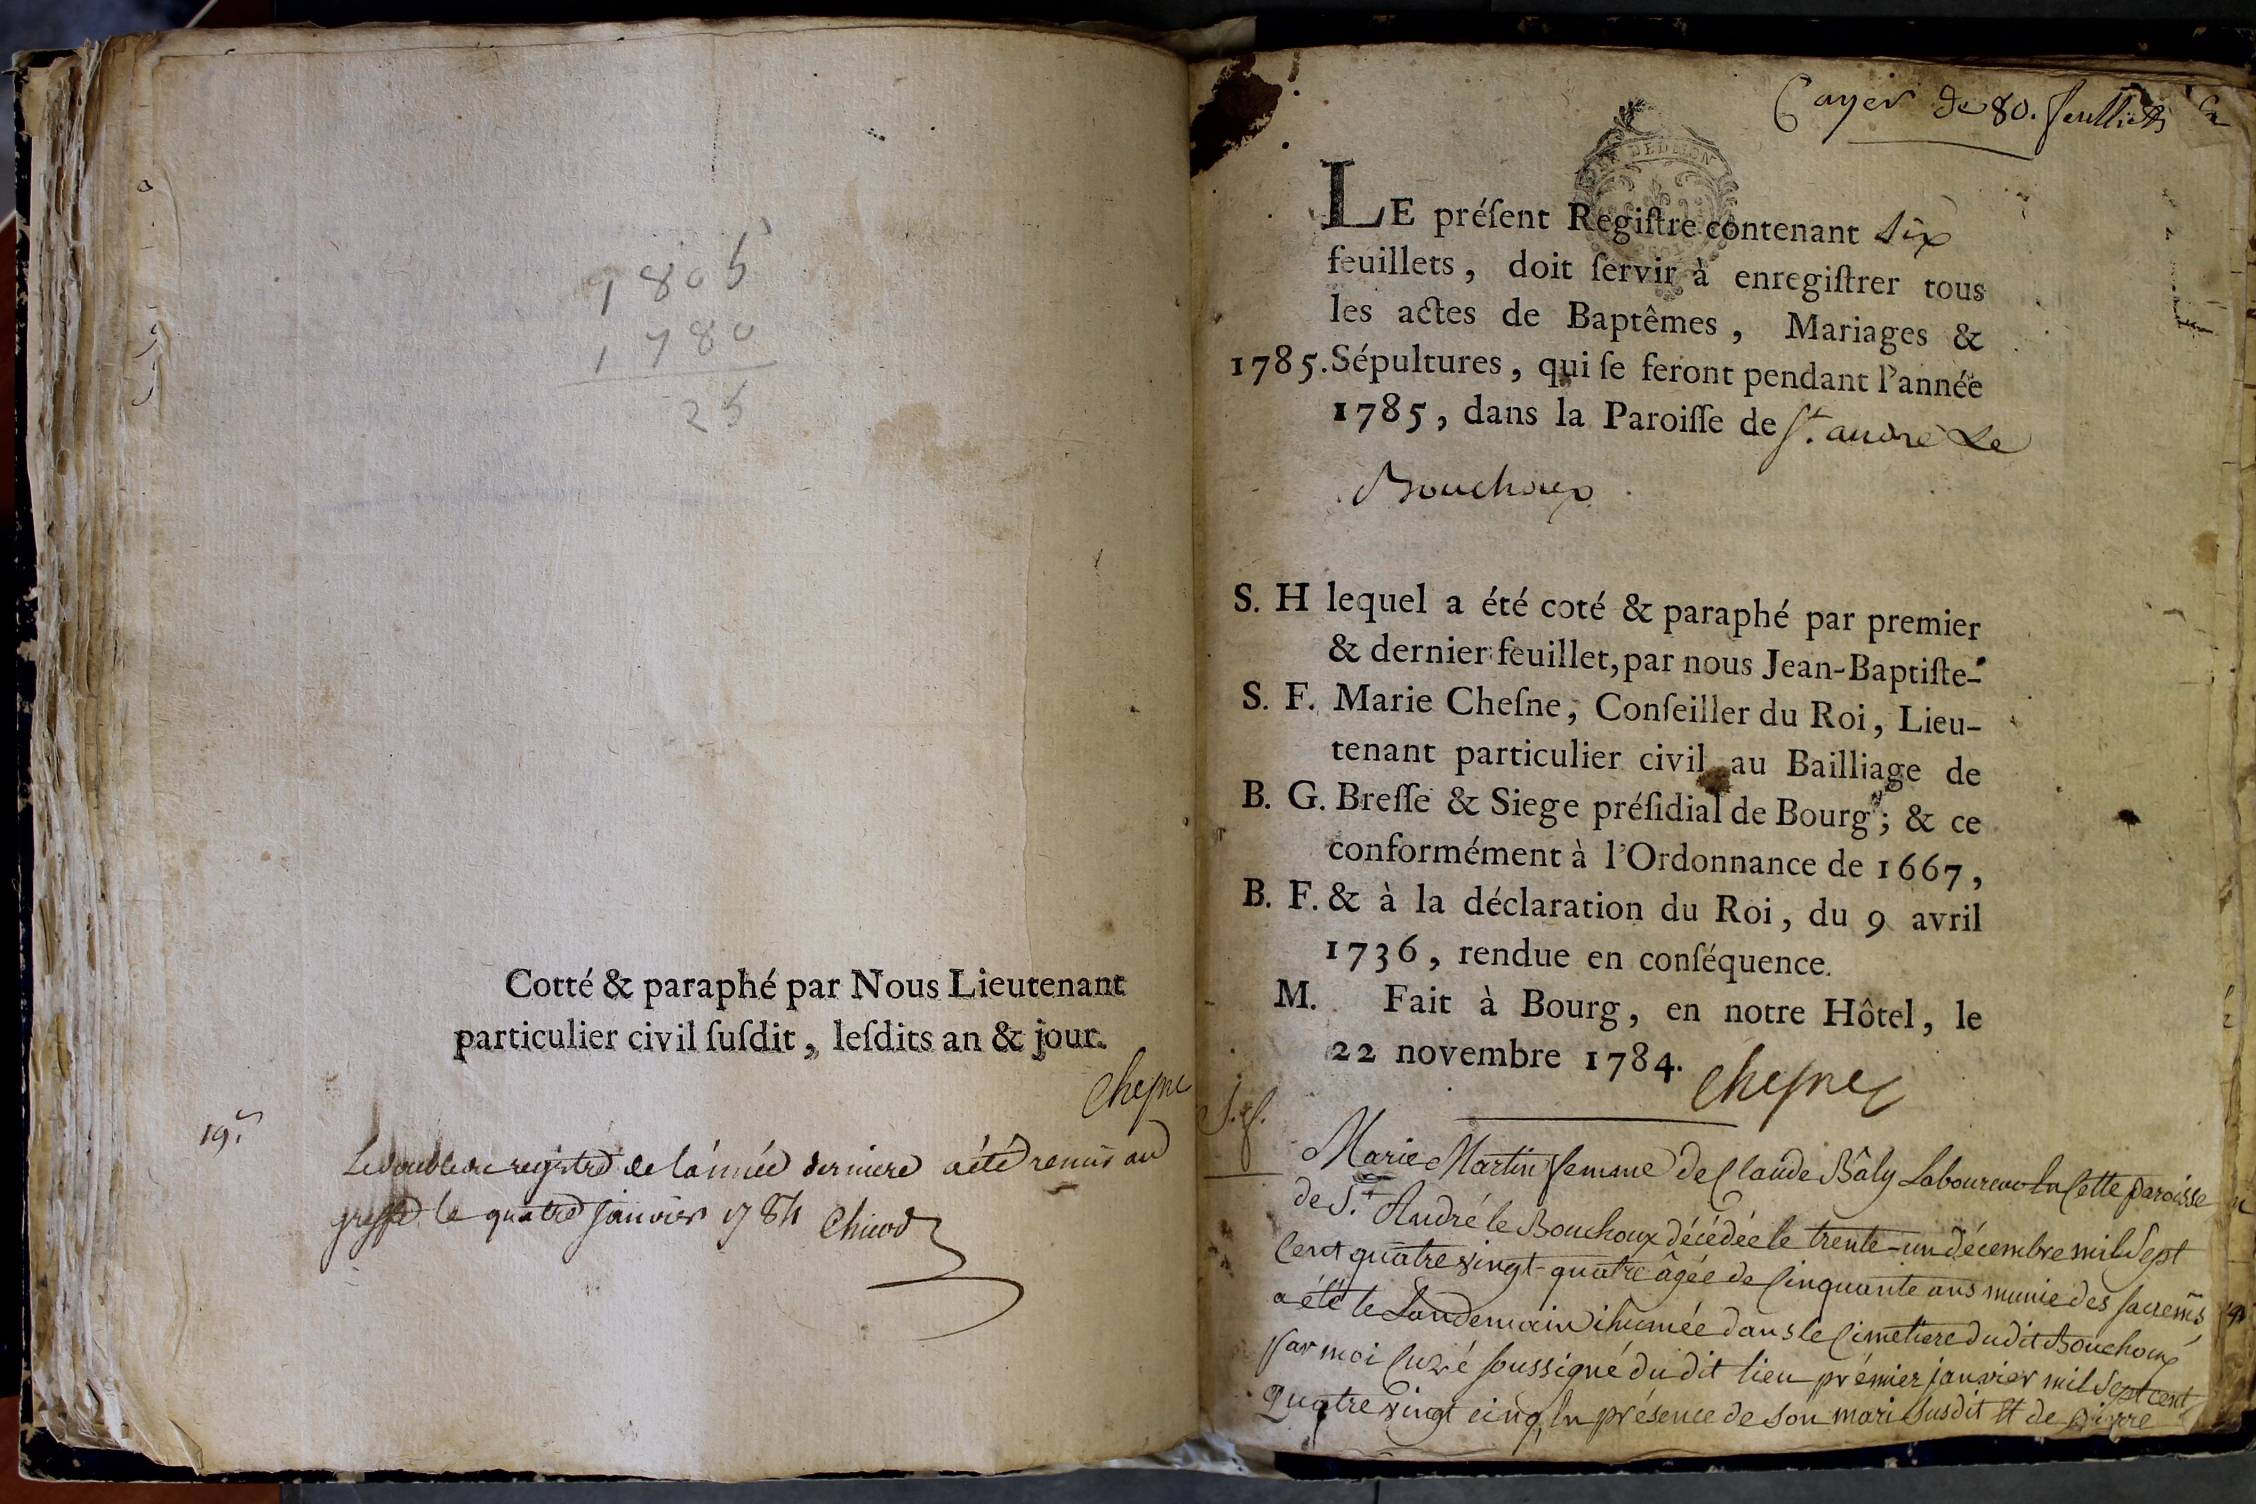 1805
1780
25
Cotté & paraphé par Nous Lieutenant
particulier civil ſuſdit, leſdits an & jour.
Cheſne
19.
Le double du registre de l'année derniere a été remis au
greffe le quatre janvier 1784 Chicod
Cayer de 80. feuilliets
DE DIJON
LE préſent Regiſtre contenant Six
feuillets, doit ſervir à enregiſtrer tous
les actes de Baptêmes, Mariages &
1785. Sépultures, qui ſe feront pendant l'année
1785, dans la Paroiſſe de St. andré Le
Bouchoux
S. H lequel a été coté & paraphé par premier
& dernier feuillet, par nous Jean-Baptiſte-
S. F. Marie Cheſne, Conſeiller du Roi, Lieu-
tenant particulier civil au Bailliage de
B. G. Breſſe & Siege préſidial de Bourg; & ce
conformément à l'Ordonnance de 1667,
B. F. & à la déclaration du Roi, du 9 avril
1736, rendue en conſéquence.
M. Fait à Bourg, en notre Hôtel, le
22 novembre 1784. Cheſne
S. f.
Marie Martin femme de Claude Bâly Laboureur En Cette paroisse
de St. André le Bouchoux décédée le trente-un décembre mil Sept
Cent quatre vingt-quatre âgée de Cinquante ans munie des sacrem̃s
a été le Landemain ihumée dans le Cimetiere dudit Bouchoux
Par moi Curé soussigné du dit lieu prémier janvier mil Sept cent
Quatre vingt cinq, En présence de son mari susdit Et de pierre